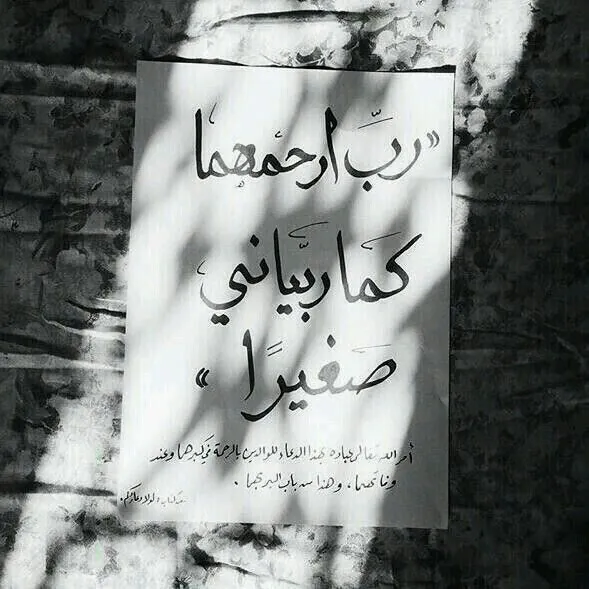 «ربِّ ارحمهما
كَمَا ربَّيَانِي
صَغيرًا»
أمر الله تعالى عباده بهذا الدعاء للوالدين بالرحمة في كبرهما وعند
وفاتهما، وهذا من باب البر بهما.